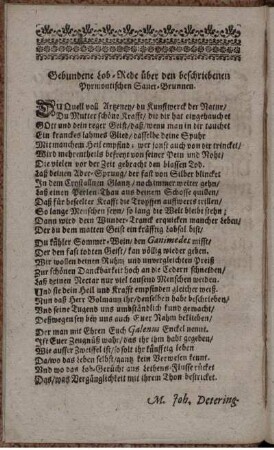 Gebundene Lob-Rede über den beschriebenen
Pyrmontischen Sauer-Brunnen.
DU Quell voll Artzeney/ du Kunstwerck der Natur/
Du Mutter schöner Kräffte/ die dir hat eingehauchet
Gott und dein reger Geist/ daß/ wenn man in dir tauchet
Ein kranckes lahmes Glied/ dasselbe deine Spuhr
Mit manchem Heil empfind/ wer sonst auch von dir trincket/
Wird mehrentheils befreyt von seiner Pein und Noht/
Die vielen vor der Zeit gebracht den blassen Tod.
Laß deinen Ader-Sprung/ der fast von Silber blincket
In dem Crystallinen Glantz/ noch immer weiter gehn/
Laß einen Perlen Than aus deinem Schosse quillen/
Daß für besselter Krafft die Tropffen auffwerts trillen/
So lange Menschen seyn/ so lang die Welt bleibt stehn;
Dann wird dein Wunder-Tranck erquicken mancher Leben/
Der du dem matten Geist ein kräfftig Labsal bist/
Du kühler Sommer-Wein/ den Ganimedes misst/
Der den fast todten Geist/ kan völlig wieder geben.
Wir wollen deinen Ruhm und unvergleichten Preiß
Zur schönen Danckbarkeit hoch an die Cedern schneiden/
Laß deinen Nectar nur viel tausend Menschen weiden/
Und sie dein Heil und Krafft empfinden gleicher weiß.
Nun daß Herr Bolmann ihr/ denselben habt beschrieben/
Und seine Tugend uns umbständlich kund gemacht/
Deßwegen sey bey uns auch Euer Ruhm beklieben/
Der man mit Ehren Euch Galenus Enckel nennt.
Ist Euer Zeugnüß wahr/ das ihr ihm habt gegeben/
Wie ausser Zweiffel ist/ so solt ihr künfftig leben
Da/ wo das Leben selbst/ gantz kein Verwesen kennt.
Und wo das Lob-Gerücht aus Lethens-Flüsse rücket
Das/ was Vergänglichkeit mit ihrem Thon bestricket.
M. Joh. Detering